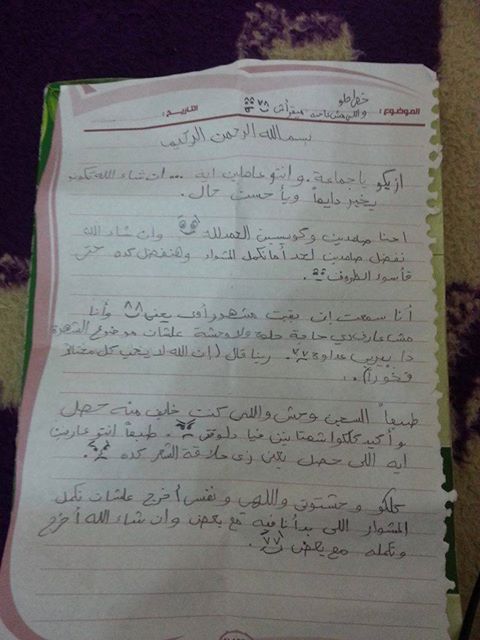 خطي حلو
الموضوع : واللي مش عاجبه ميقرأش ^^ التاريخ :
بسم الله الرحمن الرحيم
ازيكو يا جماعة .. وانتو عاملين ايه ... ان شاء الله تكونو
بخير دايماً وبأحسن حال .
احنا صامدين وكويسين الحمدلله وان شاء الله
نفضل صامدين لحد أما نكمل المشوار وهنفضل كده حتى
فأسوء الظروف
أنا سمعت إن بقيت مشهور أوي يعني ^^ وأنا
مش عارف دي حاجة حلوة ولا وحشة علشان موضوع الشهرة
دا بيربي عداوة ^^ . ربنا قال (إن الله لا يحب كل مختال
فخوراً) .
طبعاً السجن وحش واللي كنت خايف منه حصل
وأكيد كلكوا شمتانين فيا دلوقتي . طبعاً انتو عارفين
ايه اللي حصل يعني زي حلاقة الشعر كده .
كلكو وحشتوني واللهي ونفسي أخرج علشان نكمل
المشوار اللي بدأنا فيه مع بعض وان شاء الله أخرج
ونكمله مع بعض ^^ .